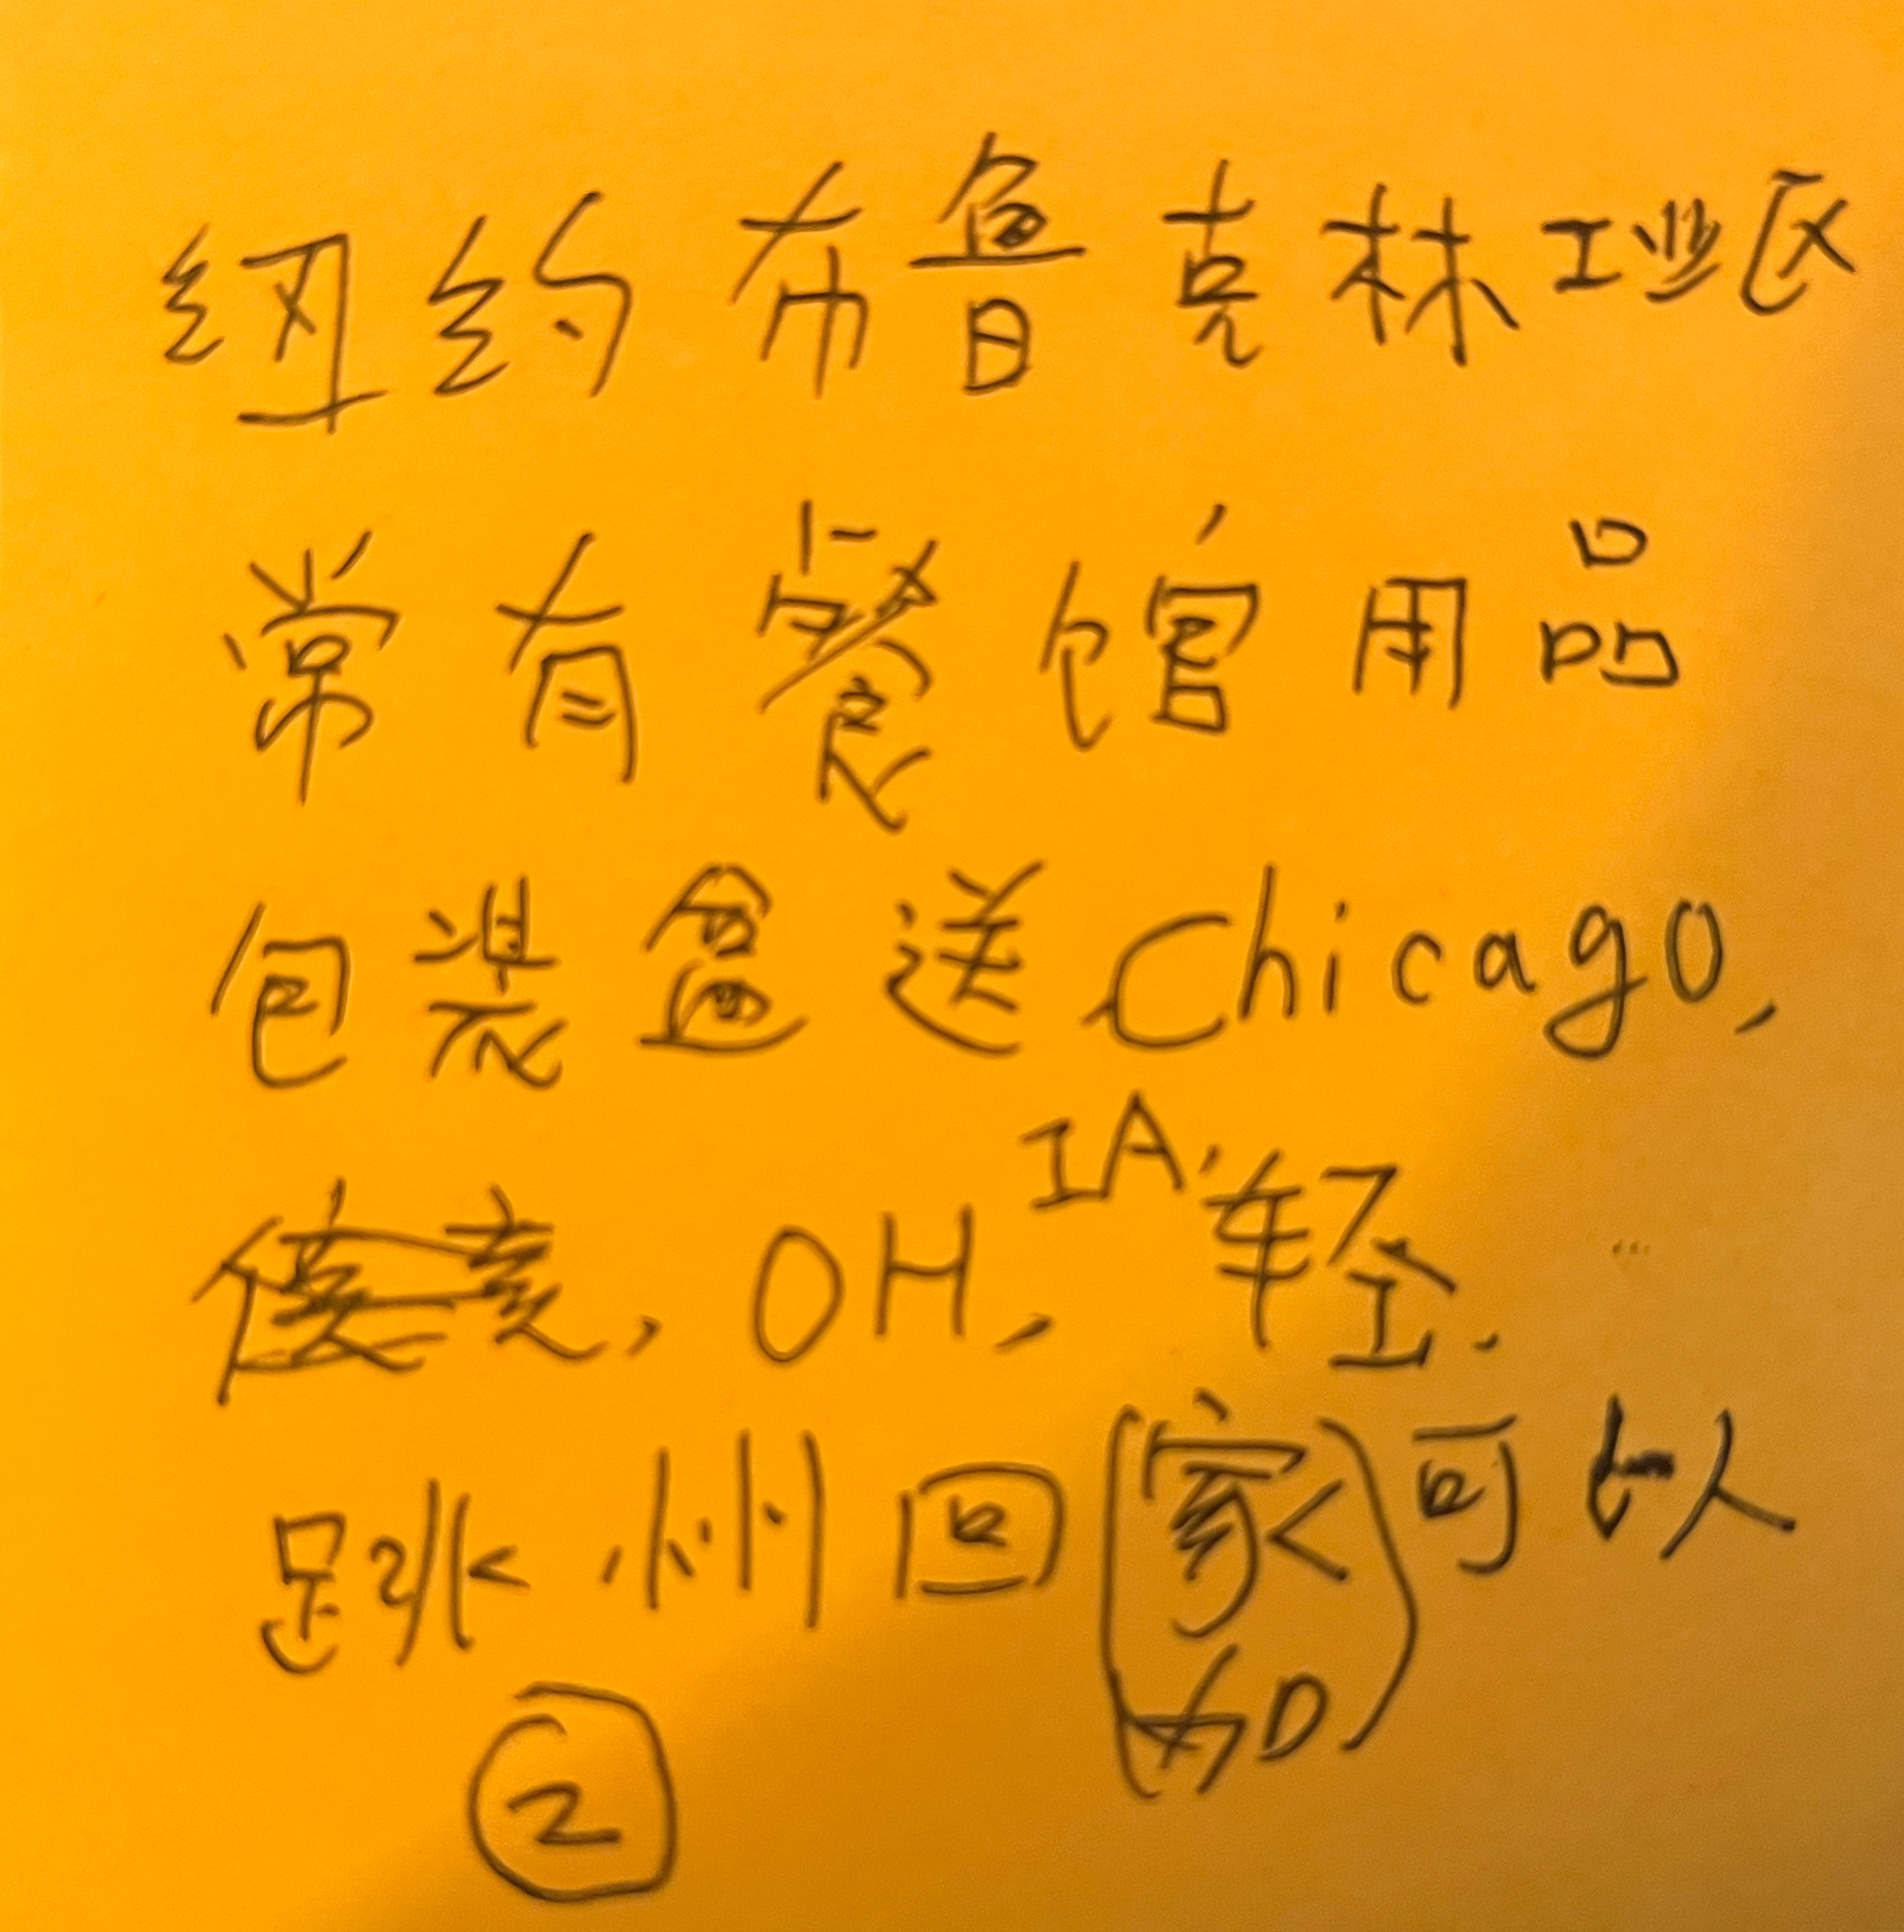 纽约布鲁克林工业区
常有餐馆用品
包装盒送Chicago,
, OH, IA, 轻.
跳州回(家加)可以
②